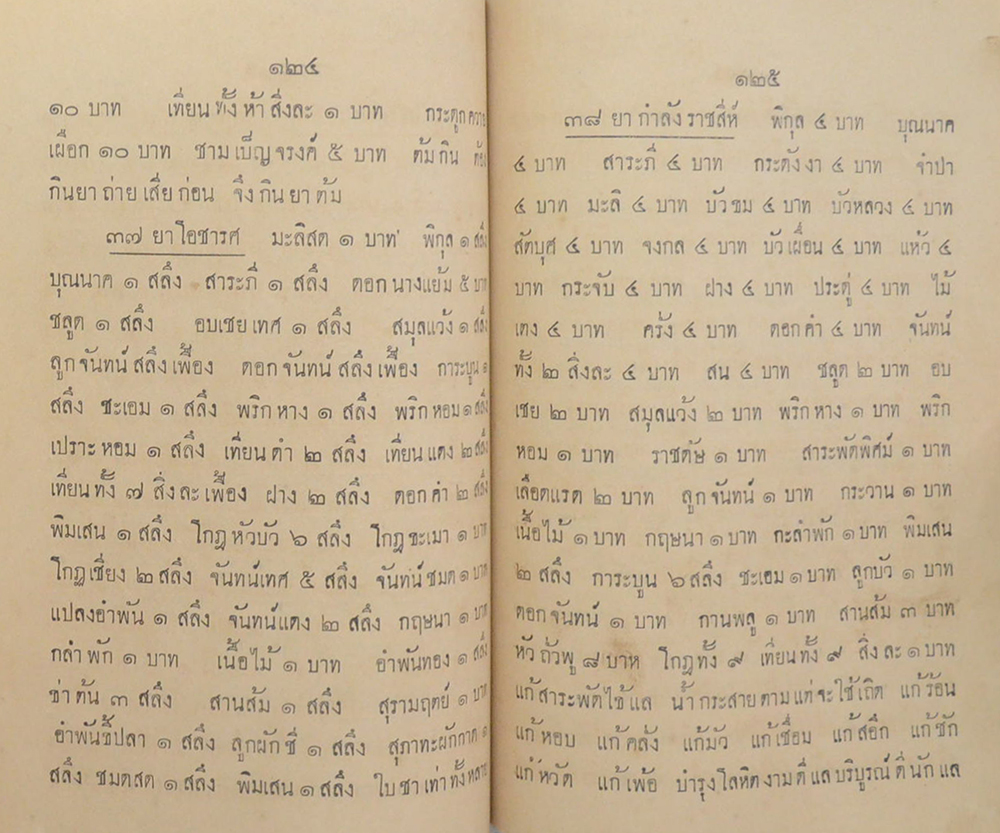 ๑๒๔
๑๐ บาท เทียนทั้งห้าสิ่งละ ๑ บาท กระดูกควาย
เผือก ๑๐ บาท ชามเบ็ญจรงค์ ๕ บาท ต้มกิน ต้อง
กินยาถ่ายเสียก่อน จึงกินยาต้ม
๓๗ ยาโอชารศ มะลิสด ๑ บาท พิกุล ๑ สลึง
บุณนาค ๑ สลึง สาระภี ๑ สลึง ดอกนางแย้ม ๕ บาท
ชลูด ๑ สลึง อบเชยเทศ ๑ สลึง สมุลแว้ง ๑ สลึง
ลูกจันทน์สลึงเฟื้อง ดอกจันทน์สลึงเฟื้อง การะบูน ๑
สลึง ชะเอม ๑ สลึง พริกหาง ๑ สลึง พริกหอม ๑ สลึง
เปราะหอม ๑ สลึง เทียนดำ ๒ สลึง เทียนแดง ๒ สลึง
เทียนทั้ง ๗ สิ่งละเฟื้อง ฝาง ๒ สลึง ดอกคำ ๒ สลึง
พิมเสน ๑ สลึง โกฏหัวบัว ๖ สลึง โกฏชะเมา ๑ บาท
โกฏเชียง ๒ สลึง จันทน์เทศ ๕ สลึง จันทน์ชมด ๑ บาท
แปลงอำพัน ๑ สลึง จันทน์แดง ๒ สลึง กฤษนา ๑ บาท
กลำพัก ๑ บาท เนื้อไม้ ๑ บาท อำพันทอง ๑ สลึง
ข่าต้น ๓ สลึง สานส้ม ๑ สลึง สุรามฤตย์ ๑ บาท
อำพันขี้ปลา ๑ สลึง ลูกผักชี ๑ สลึง สุภาทะผักกาด ๑
สลึง ชมดสด ๑ สลึง พิมเสน ๑ สลึง ใบชาเท่าทั้งหลาย
๑๒๕
๓๘ ยากำลังราชสีห์ พิกุล ๔ บาท บุณนาค
๔ บาท สาระภี ๔ บาท กระดังงา ๔ บาท จำปา
๔ บาท มะลิ ๔ บาท บัวขม ๔ บาท บัวหลวง ๔ บาท
สัตบุศ ๔ บาท จงกล ๔ บาท บัวเผื่อน ๔ บาท แห้ว ๔
บาท กระจับ ๔ บาท ฝาง ๔ บาท ประดู่ ๔ บาท ไม้
แดง ๔ บาท ครั่ง ๔ บาท ดอกคำ ๔ บาท จันทน์
ทั้ง ๒ สิ่งละ ๔ บาท สน ๔ บาท ชลูด ๒ บาท อบ
เชย ๒ บาท สมุลแว้ง ๒ บาท พริกหาง ๑ บาท พริก
หอม ๑ บาท ราชดัษ ๑ บาท สาระพัดพิศม์ ๑ บาท
เลือดแรด ๒ บาท ลูกจันทน์ ๑ บาท กระวาน ๑ บาท
เนื้อไม้ ๑ บาท กฤษนา ๑ บาท กะลำพัก ๑ บาท พิมเสน
๒ สลึง การะบูน ๖ สลึง ชะเอม ๑ บาท ลูกบัว ๑ บาท
ดอกจันทน์ ๑ บาท กานพลู ๑ บาท สานส้ม ๓ บาท
หัวถั่วพู ๘ บาท โกฏทั้ง ๙ เทียนทั้ง ๙ สิ่งละ ๑ บาท
แก้สาระพัดไข้แล น้ำกระสายตามแต่จะใช้เถิด แก้ร้อน
แก้หอบ แก้คลั่ง แก้มัว แก้เชื่อม แก้สอึก แก้ชัก
แก้หวัด แก้เพ้อ บำรุงโลหิตงามดีแลบริบูรณ์ดีนักแล